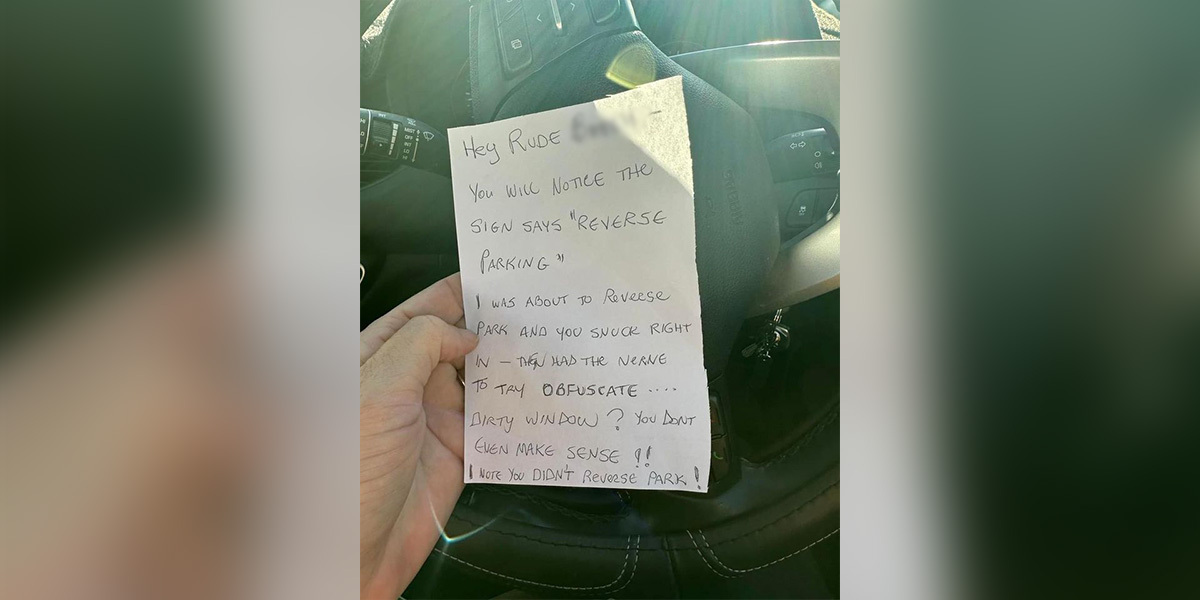 Hey RUDE
YOU WILL NOTICE THE
SIGN SAYS "REVERSE
PARKING"
I WAS ABOUT TO Reverse
PARK AND YOU SNUCK RIGHT
IN – THEN HAD THE NERVE
TO TRY OBFUSCATE ....
DIRTY WINDOW? YOU DONT
EVEN MAKE SENSE !!
I NOTE YOU DIDN'T Reverse PARK!
MIST
OFF
INT
LO
HI